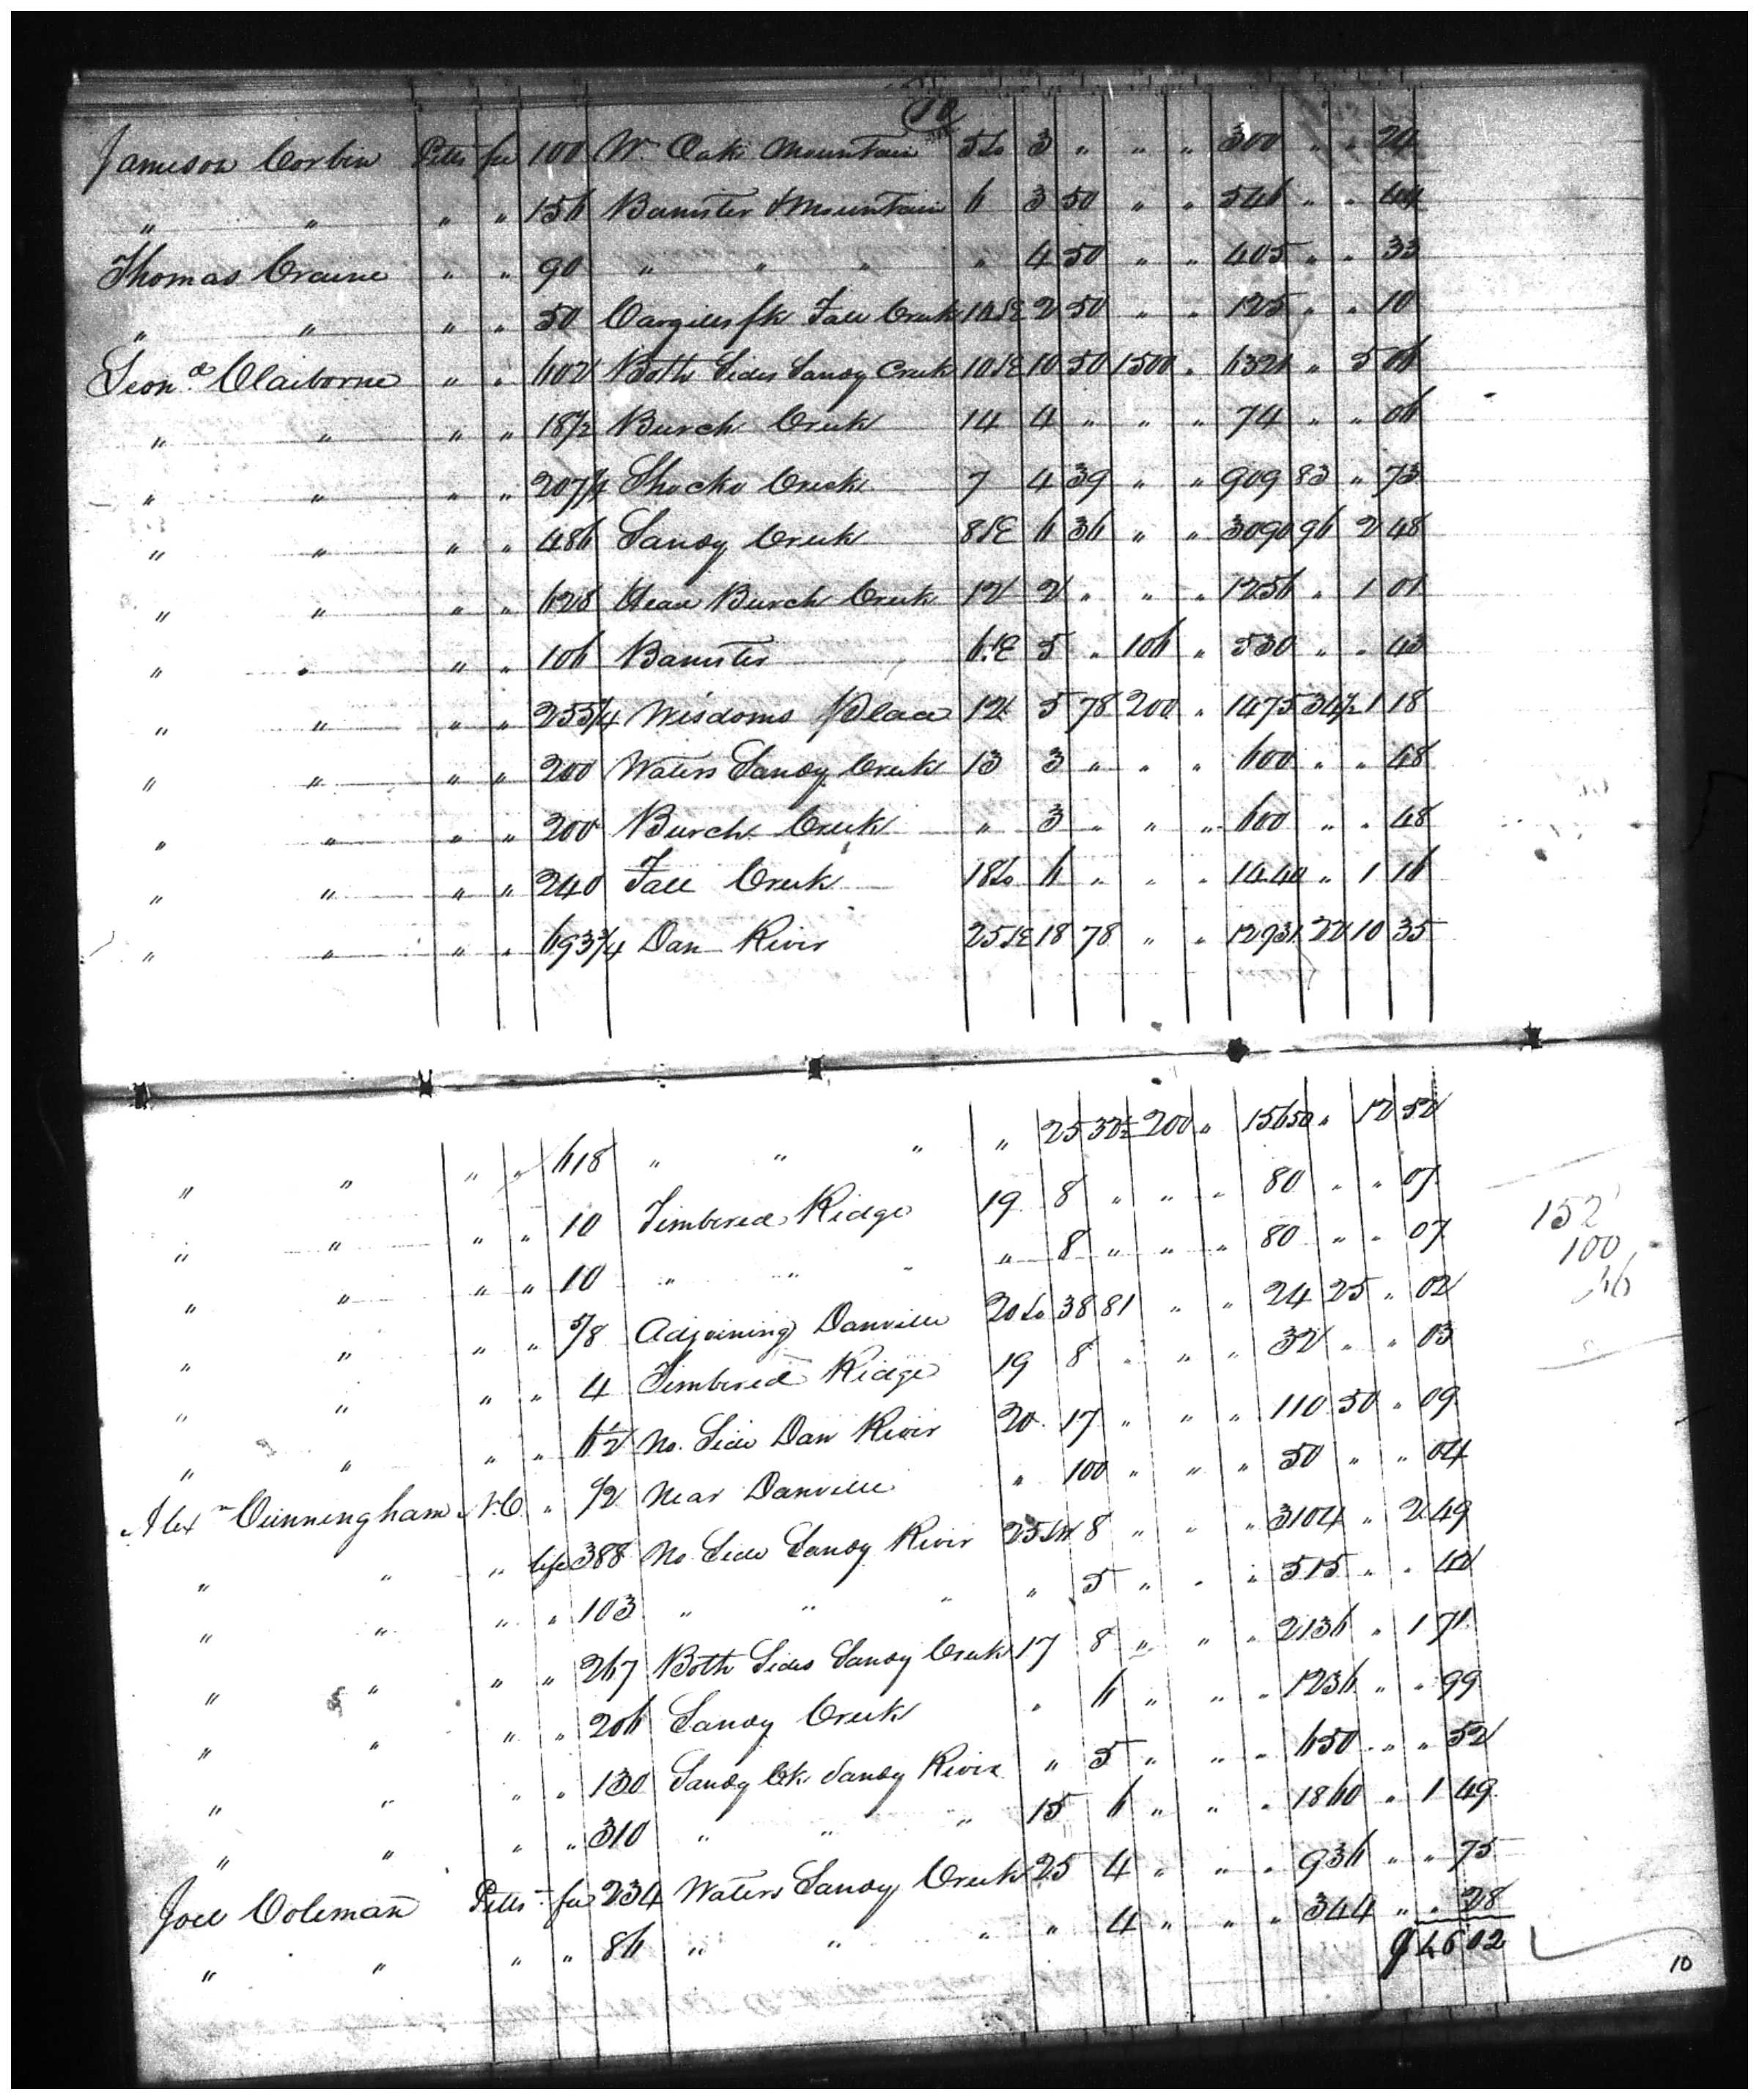 10
Jameson Corbin Pitts fee 100 W. Oak Mountain 5 So 3 " " " 300 " " 24
" " " " 156 Banister & Mountain 6 3 50 " " 546 " " 44
Thomas Craine " " 90 " " " " 4 50 " " 405 " " 33
" " " " 50 Cargills fk Fall Creek 10 SE 2 50 " " 125 " " 10
Leond Claiborne " " 602 Both Sides Sandy Creek 10 SE 10 50 1500 " 6321 " 5 06
" " " " 18 1/2 Burch Creek 14 4 " " " 74 " " 06
" " " " 207 1/4 Shocko Creek 7 4 39 " " 909 83 " 73
" " " " 486 Sandy Creek 8 SE 6 36 " " 3090 96 2 48
" " " " 628 Head Burch Creek 12 2 " " " 1256 " 1 01
" " " " 106 Banister 6 SE 5 " 106 " 530 " " 43
" " " " 255 1/4 Wisdoms Place 12 5 78 200 " 1475 34 1/2 1 18
" " " " 200 Waters Sandy Creek 13 3 " " " 600 " " 48
" " " " 200 Burch Creek " 3 " " " 600 " " 48
" " " " 240 Fall Creek 18 So 6 " " " 1440 " 1 16
" " " " 693 3/4 Dan River 25 SE 18 78 " " 12931 22 10 35
" " " " 618 " " " " 25 32 1/2 200 " 15650 " 12 52
" " " " 10 Timbered Ridge 19 8 " " " 80 " " 07
" " " " 10 " " " " 8 " " " 80 " " 07
" " " " 5/8 Adjoining Danville 20 So 38 81 " " 24 25 " 02
" " " " 4 Timbered Ridge 19 8 " " " 32 " " 03
" " " " 6 1/2 No. Side Dan River 20 17 " " " 110 50 " 09
Alexr Cunningham N.C. " 1/2 Near Danville " 100 " " " 50 " " 04
" " " life 388 No Side Sandy River 25 SW 8 " " " 3104 " 2 49
" " " " 103 " " " " 5 " " " 515 " " 42
" " " " 267 Both Sides Sandy Creek 17 8 " " " 2136 " 1 71
" " " " 206 Sandy Creek " 6 " " " 1236 " " 99
" " " " 130 Sandy Ck Sandy River " 5 " " " 650 " " 52
" " " " 310 " " " 15 6 " " " 1860 " 1 49
Joel Coleman Pitts fee 234 Waters Sandy Creek 25 4 " " " 936 " " 75
" " " " 86 " " " " 4 " " " 344 " " 28
$46 02
152
100
10